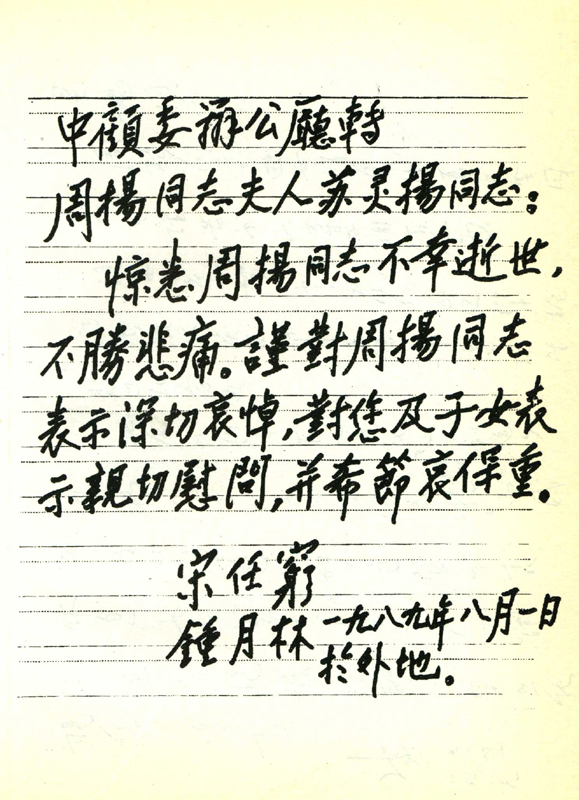 中顧委辦公廳轉
周揚同志夫人苏灵揚同志：
惊悉周揚同志不幸逝世，
不勝悲痛。謹對周揚同志
表示深切哀悼，對您及子女表
示親切慰問，并希節哀保重。
宋任窮
鍾月林 一九八九年八月一日
於外地。